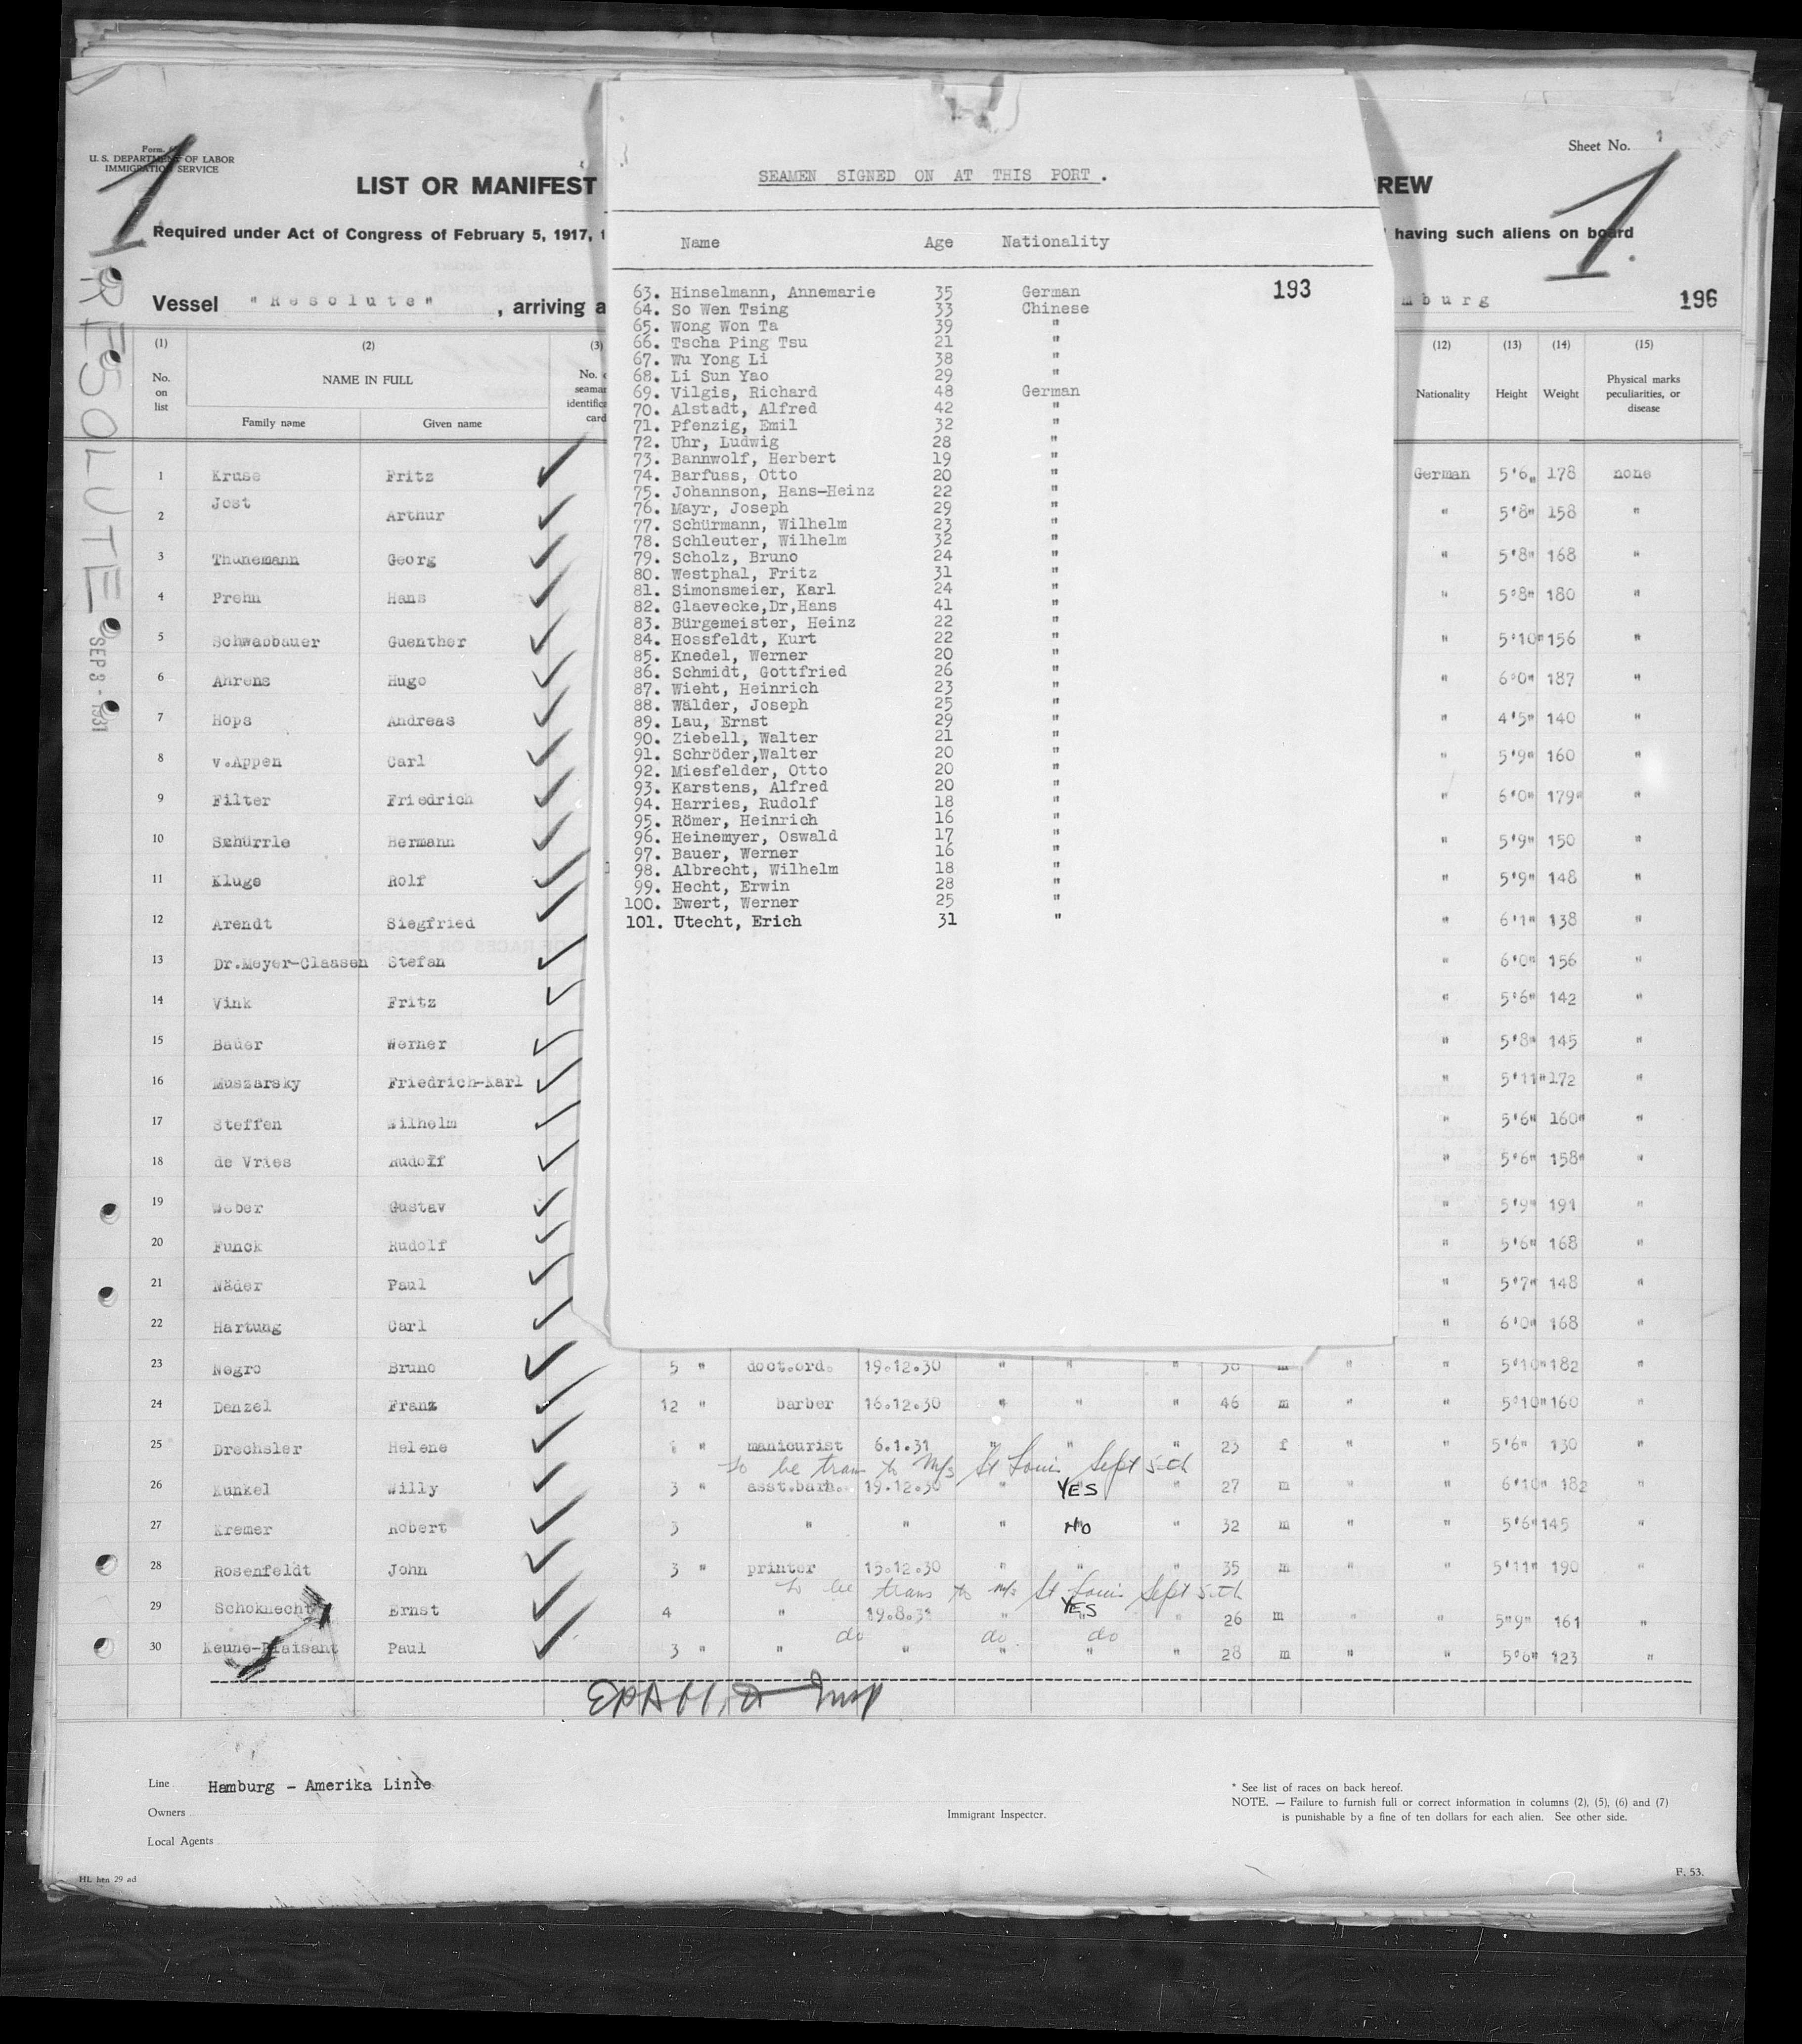 Form
U. S. DEPARTMENT OF LABOR
IMMIGRATION SERVICE
Sheet No. 1
1
1
LIST OR MANIFEST
REW
Required under Act of Congress of February 5, 1917,
having such aliens on board
Vessel "Resolute", arriving a
mburg
196
RESOLUTE
SEP 3 - 1931
SEAMEN SIGNED ON AT THIS PORT.
Name Age Nationality
193
63. Hinselmann, Annemarie 35 German
64. So Wen Tsing 33 Chinese
65. Wong Won Ta 39 "
66. Tscha Ping Tsu 21 "
67. Wu Yong Li 38 "
68. Li Sun Yao 29 "
69. Vilgis, Richard 48 German
70. Alstadt, Alfred 42 "
71. Pfenzig, Emil 32 "
72. Uhr, Ludwig 28 "
73. Bannwolf, Herbert 19 "
74. Barfuss, Otto 20 "
75. Johannson, Hans-Heinz 22 "
76. Mayr, Joseph 29 "
77. Schürmann, Wilhelm 23 "
78. Schleuter, Wilhelm 32 "
79. Scholz, Bruno 24 "
80. Westphal, Fritz 31 "
81. Simonsmeier, Karl 24 "
82. Glaevecke,Dr,Hans 41 "
83. Bürgemeister, Heinz 22 "
84. Hossfeldt, Kurt 22 "
85. Knedel, Werner 20 "
86. Schmidt, Gottfried 26 "
87. Wieht, Heinrich 23 "
88. Wälder, Joseph 25 "
89. Lau, Ernst 29 "
90. Ziebell, Walter 21 "
91. Schröder,Walter 20 "
92. Miesfelder, Otto 20 "
93. Karstens, Alfred 20 "
94. Harries, Rudolf 18 "
95. Römer, Heinrich 16 "
96. Heinemyer, Oswald 17 "
97. Bauer, Werner 16 "
98. Albrecht, Wilhelm 18 "
99. Hecht, Erwin 28 "
100. Ewert, Werner 25 "
101. Utecht, Erich 31 "
(1) (2) (3) (12) (13) (14) (15)
No. on list
NAME IN FULL
Family name Given name
No.
seaman
identific
card
Nationality Height Weight Physical marks peculiarities, or disease
1 Kruse Fritz German 5'6" 178 none
2 Jost Arthur " 5'8" 158 "
3 Thunemann Georg " 5'8" 168 "
4 Prehn Hans " 5'8" 180 "
5 Schwabbauer Guenther " 5'10" 156 "
6 Ahrens Hugo " 6'0" 187 "
7 Hops Andreas " 4'5" 140 "
8 v.Appen Carl " 5'9" 160 "
9 Filter Friedrich " 6'0" 179" "
10 Schürrle Hermann " 5'9" 150 "
11 Kluge Rolf " 5'9" 148 "
12 Arendt Siegfried " 6'1" 138 "
13 Dr.Meyer-Claasen Stefan " 6'0" 156 "
14 Vink Fritz " 5'6" 142 "
15 Bauer Werner " 5'8" 145 "
16 Muszarsky Friedrich-Karl " 5'11" 172 "
17 Steffen Wilhelm " 5'6" 160" "
18 de Vries Rudolf " 5'6" 158" "
19 Weber Gustav " 5'9" 191 "
20 Funck Rudolf " 5'6" 168 "
21 Näder Paul " 5'7" 148 "
22 Hartung Carl " 6'0" 168 "
23 Negro Bruno 5 " doct.ord. 19.12.30 " " " 38 m " " 5'10" 182 "
24 Denzel Franz 12 " barber 16.12.30 " " " 46 m " " 5'10" 160 "
25 Drechsler Helene " manicurist 6.1.31 " " " 23 f " " 5'6" 130 "
to be trans to M/s St Louis Sept 5th
26 Kunkel Willy 3 " asst.barb. 19.12.30 " YES " 27 m " " 6'10" 182 "
27 Kremer Robert 3 " " " NO 32 m " " 5'6" 145 "
28 Rosenfeldt John 3 " printer 15.12.30 " " " 35 m " " 5'11" 190 "
to be trans to M/s St Louis Sept 5th
29 Schoknecht Ernst 4 " 19.8.31 " YES " 26 m " " 5"9" 161 "
do do do
30 Keune-Plaisant Paul 3 " " " " " " 28 m " " 5'6" 123 "
Line Hamburg - Amerika Linie
Owners
Local Agents
Immigrant Inspector.
* See list of races on back hereof.
NOTE. — Failure to furnish full or correct information in columns (2), (5), (6) and (7)
is punishable by a fine of ten dollars for each alien. See other side.
HL hen 29 ad
F. 53.